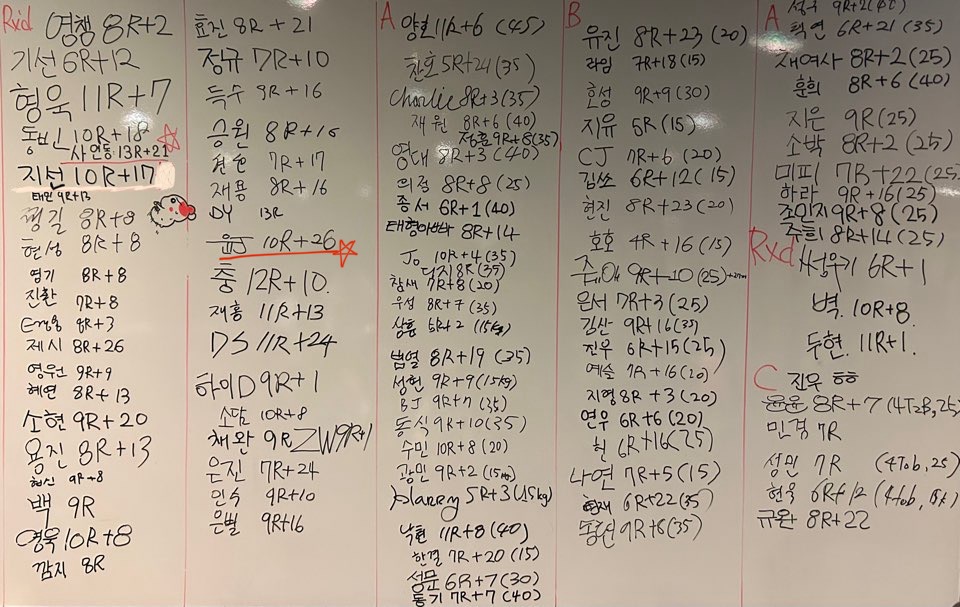 Rxd
영챙 8R+2
기선 6R+12
형욱 11R+7
동빈 10R+18
사인동 13R+21
지선 10R+17
태민 9R+13
평길 8R+8
현성 8R+8
영기 8R+8
진환 7R+8
8R+3
제시 8R+26
영우원 9R+9
혜연 8R+13
소현 9R+20
용진 8R+13
9R+8
백 9R
영욱 10R+8
깜지 8R
효진 8R+21
정규 7R+10
득수 9R+16
승원 8R+16
7R+17
재용 8R+16
DY 13R
윤J 10R+26
중 12R+10.
재홍 11R+13
DS 11R+24
하이D 9R+1
소담 10R+8
채완 9R ZW9R+1
은진 7R+24
민수 9R+10
은별 9R+16
A
11R+6 (45)
찬호 5R+24 (35)
Charlie 8R+3 (35)
재원 8R+6 (40)
정훈 9R+8 (35)
영대 8R+3 (40)
의정 8R+8 (25)
종서 6R+1 (40)
태형아빠 8R+14
Jo 10R+4 (35)
8R (35)
참새 7R+8 (20)
우성 8R+7 (35)
상흠 6R+2 (15kg)
법열 8R+19 (35)
성헌 9R+9 (15kg)
BJ 9R+7 (35)
동식 9R+10 (35)
수민 10R+8 (20)
광민 9R+2 (15kg)
planeng 5R+3 (15kg)
낙현 11R+8 (40)
한결 7R+20 (15)
성문 6R+7 (30)
동기 7R+7 (40)
B
유진 8R+23 (20)
라임 7R+18 (15)
효성 9R+9 (30)
지유 5R (15)
CJ 7R+6 (20)
김쏘 6R+12 (15)
현진 8R+23 (20)
호호 4R+16 (15)
9R+10 (25)
은서 7R+3 (25)
김산 9R+16 (35)
진우 6R+15 (25)
예슬 7R+16 (20)
지형 8R+3 (20)
연우 6R+6 (20)
6R+16 (25)
나연 7R+5 (15)
현재 6R+22 (35)
종선 9R+8 (35)
A
9R+2
택연 6R+21 (35)
재여사 8R+2 (25)
훈희 8R+6 (40)
지은 9R (25)
소박 8R+2 (25)
미피 7R+22 (25)
하라 9R+16 (25)
조인지 9R+8 (25)
주희 8R+14 (25)
Rxd
써우기 6R+1
벽. 10R+8.
두현. 11R+1.
C
진우 ㅎㅎ
윤윤 8R+7 (4T2B, 25)
민경 7R
성민 7R (4Tob, 25)
현욱 6R+12
규완 8R+22